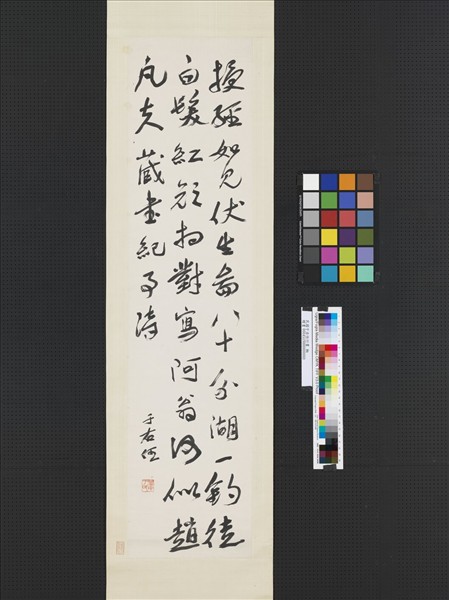 授經如見伏生圖八十分湖一釣徒
白髮紅顏相對寫阿翁何似趙
凡夫 藏書紀事詩
于右任